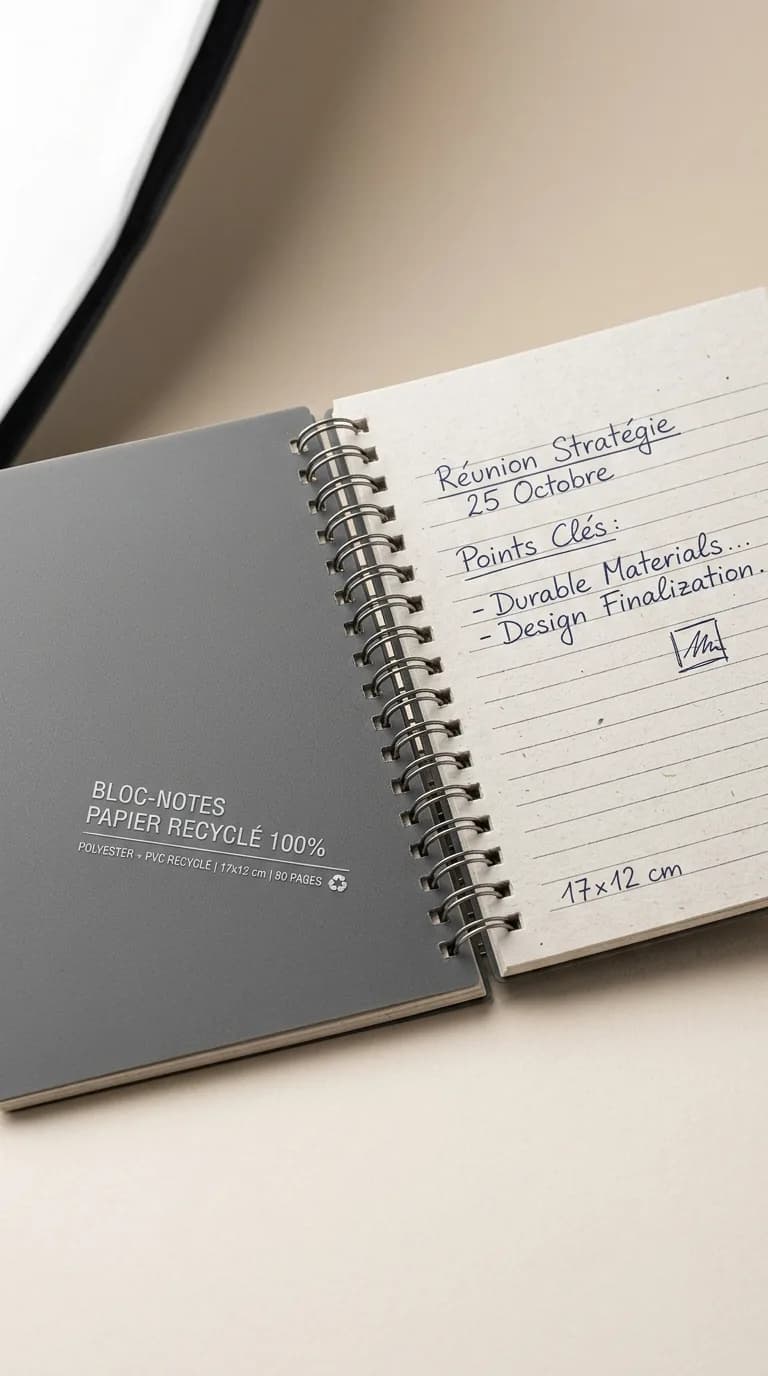 BLOC-NOTES
PAPIER RECYCLÉ 100%
POLYESTER + PVC RECYCLÉ | 17x12 cm | 80 PAGES
Réunion Stratégie
25 Octobre
Points Clés:
- Durable Materials...
- Design Finalization.
17x12 cm